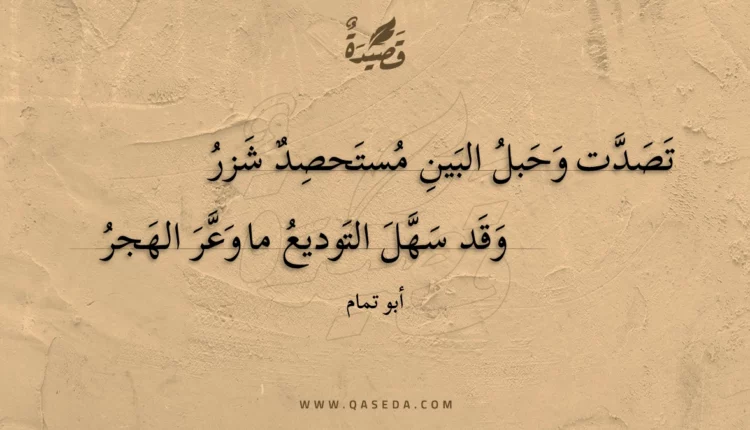 قَصِيدَةٌ
تَصَدَّت وَحَبلُ البَينِ مُستَحصِدٌ شَزرُ
وَقَد سَهَّلَ التَوديعُ ما وَعَّرَ الهَجرُ
أبو تمام
WWW.QASEDA.COM